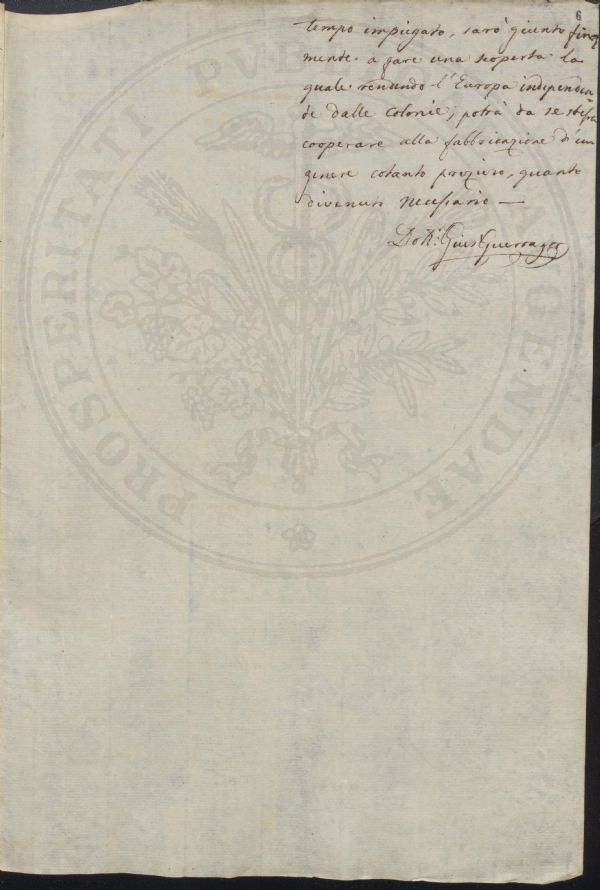 6
tempo impiegato, sarò giunto final
mente a fare una scoperta la
quale rendendo l'Europa independen
te dalle Colonie, potrà da se stessa
cooperare alla fabbricazione d'un
genere cotanto prezioso, quanto
divenuto necessario —
Dott:
PROSPERITATI PVBLICAE AVGENDAE